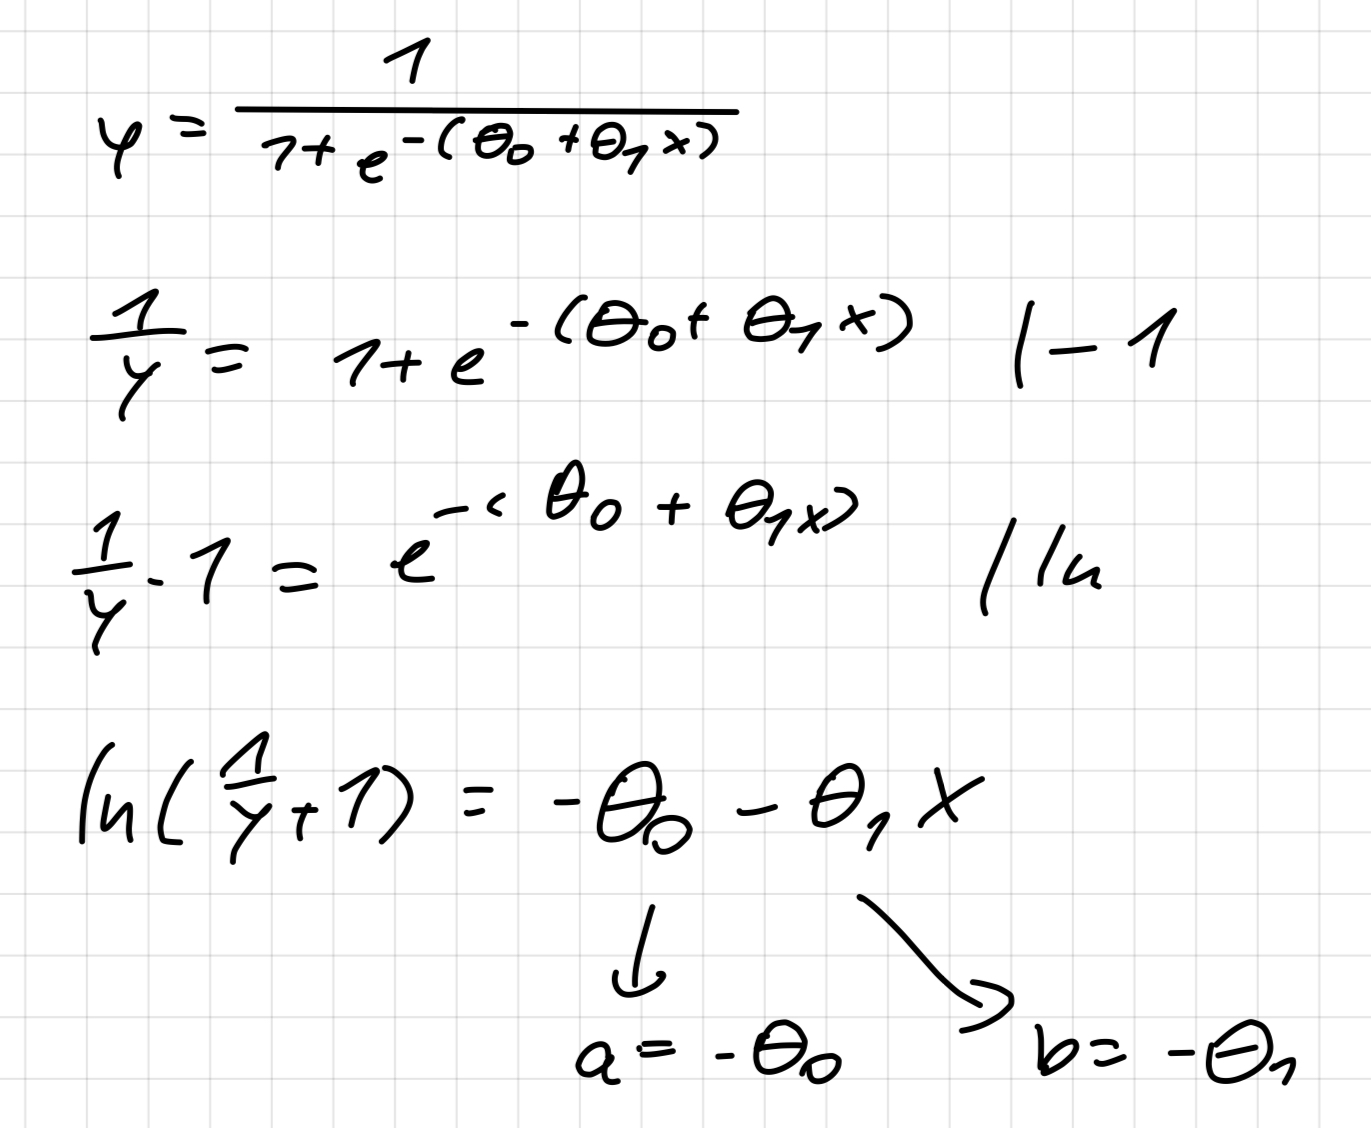 y = 1 / (1 + e^(-(θ₀ + θ₁x)))
1/y = 1 + e^(-(θ₀ + θ₁x)) | - 1
1/y - 1 = e^(-(θ₀ + θ₁x)) | ln
ln(1/y + 1) = -θ₀ - θ₁x
a = -θ₀ b = -θ₁